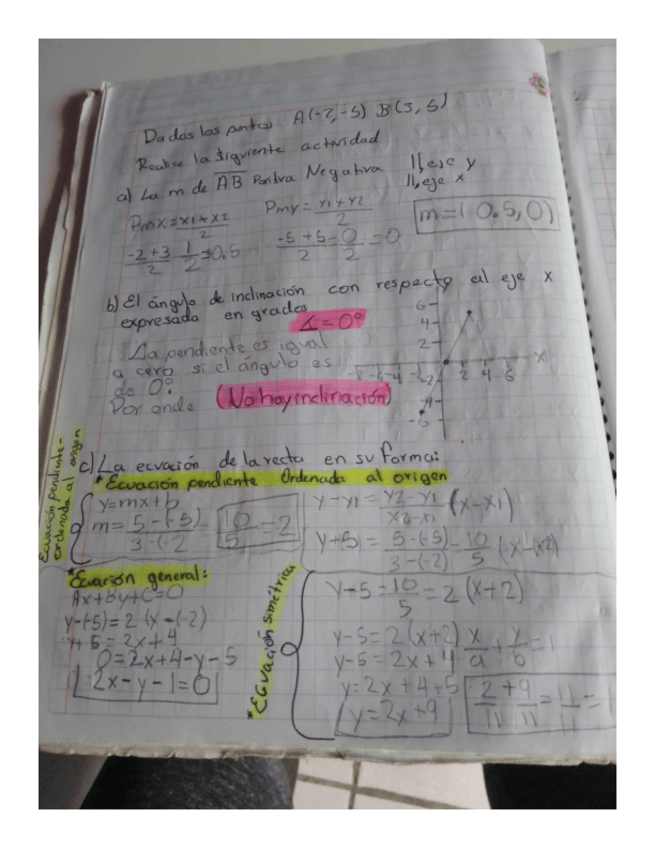 Dadas los puntos A(-2,-5) B(3,5)
Realice la siguiente actividad
a) La m de AB Positiva Negativa || eje y
|| eje x
Pmx = x1+x2/2 Pmy = y1+y2/2 m=(0.5,0)
-2+3/2 1/2 =0.5 -5+5/2 = 0/2 = 0
b) El ángulo de inclinación con respecto al eje x
expresada en grados ∡=0°
La pendiente es igual
a cero si el ángulo es
de 0°.
Por ende (No hay inclinación)
6
4
2
-8 -6 -4 -2 2 4 6 X
-2
-4
-5
c) La ecuación de la recta en su forma:
*Ecuación pendiente Ordenada al origen
Ecuación pendiente-
ordenada al origen
y=mx+b
m= 5-(-5)/3-(-2 = 10/5 = 2
y-y1 = y2-y1/x2-x1 (x-x1)
y+5 = 5-(-5)/3-(-2) = 10/5 (-x-(x2)
*Ecuación general:
Ax+By+C=0
y-(-5)=2 (x-(-2)
y+5=2x+4
0=2x+4-y-5
2x-y-1=0
*Ecuación simétrica
y-5=10/5=2(x+2)
y-5=2(x+2) x/a + y/b = 1
y-5=2x+4
y=2x+4+5
y=2x+9
2/11+9/11=11/11=1